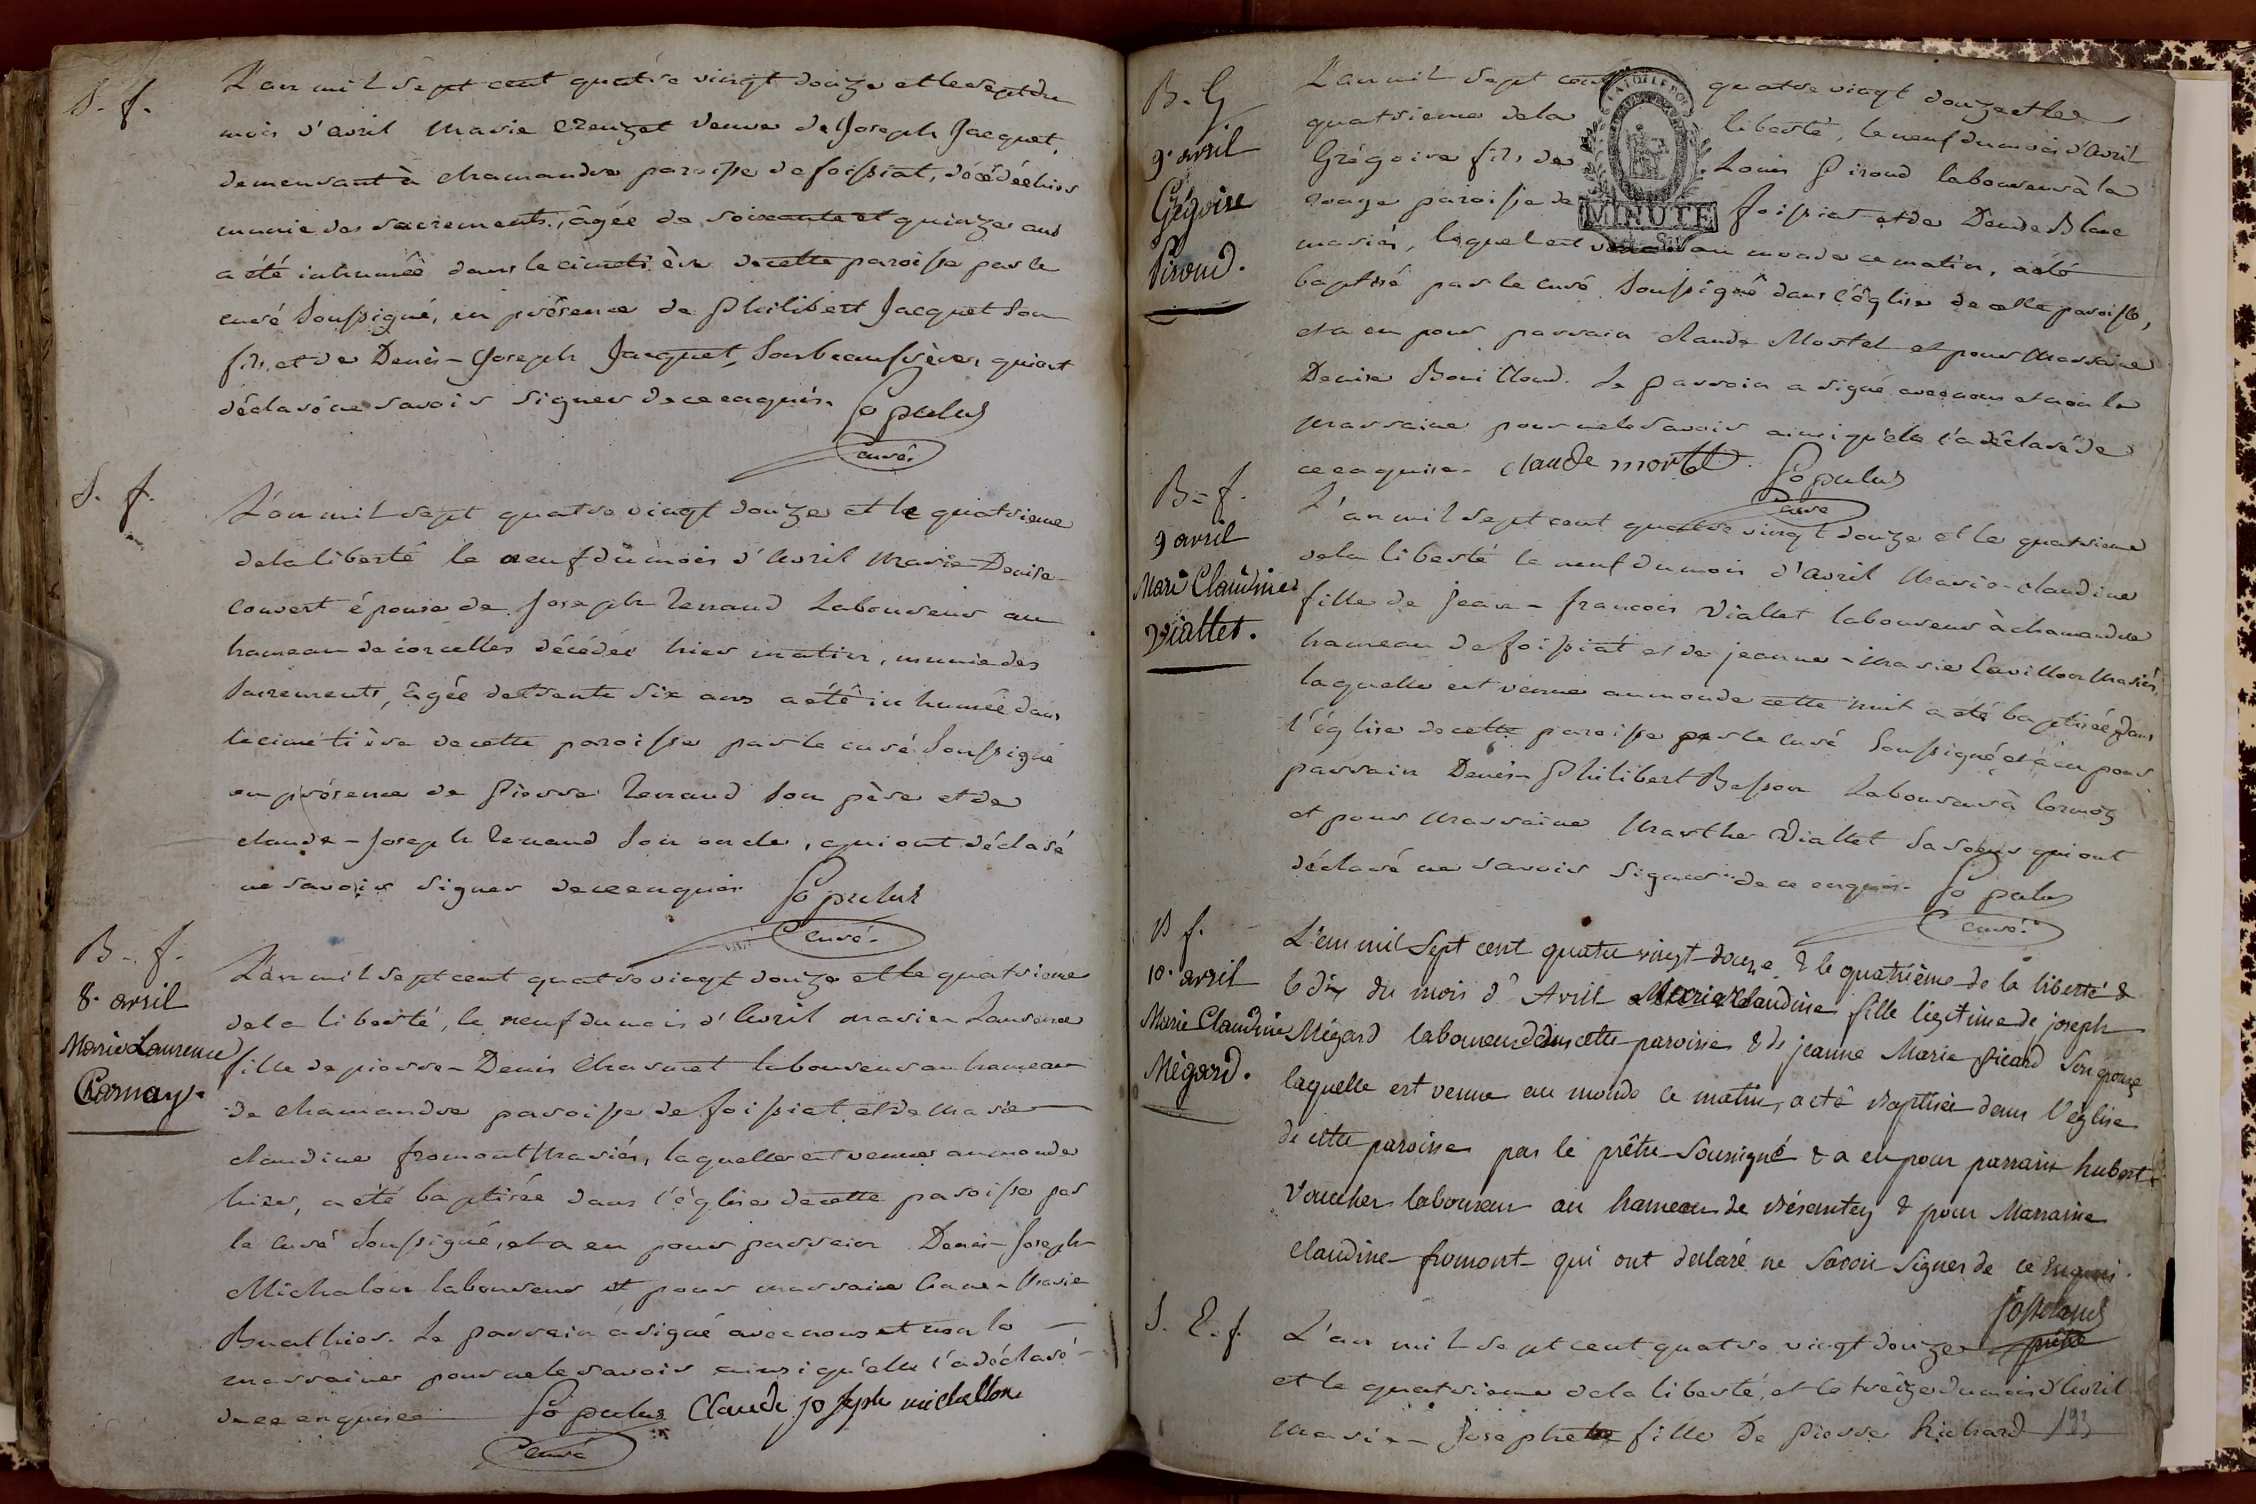 S. f.
L'an mil sept cent quatre vingt douze et le sept du
mois d'avril Marie Creuzet veuve de Joseph Jacquet,
demeurant à chamandre paroisse de foissiat, décédée hier
munie des sacrements, âgée de soixante et quinze ans
a été inhumée dans le cimetière de cette paroisse par le
curé soussigné, en présence de Philibert Jacquet son
fils et de Denis-Joseph Jacquet, son beaufrère, qui ont
déclaré ne savoir signer de ce enquis.
Populus
curé.
S. f.
L'an mil sept quatre vingt douze et le quatrieme
de la liberté le neuf du mois d'Avril Marie Denise
Convert épouse de Joseph Renaud Laboureur au
hameau de corcelles décédée hier matin, munie des
Sacrements, âgée de trente six ans a été inhumée dans
le cimetière de cette paroisse par le curé soussigné
en présence de Pierre Renaud son père et de
claude-Joseph Renaud son oncle, qui ont déclaré
ne savoir signer de ce enquis.
Populus
curé.
B. f.
8. avril
Marie Laurence
Charnay.
L'an mil sept cent quatre vingt douze et le quatrieme
de la liberté, le neuf du mois d'Avril marie Laurence
fille de pierre-Denis Charnet laboureur au hameau
de chamandre paroisse de foissiat et de Marie
claudine fromont Mariés, laquelle est venue au monde
hier, a été baptisée dans l'église de cette paroisse par
le curé soussigné, et a eu pour parrain Denis-Joseph
Michalon laboureur et pour marraine Marie
Buathier. Le parrain a signé avec nous et non la
marraine pour ne le savoir ainsi qu'elle l'a déclaré
de ce enquise
Populus Claude joseph michallon
curé
B. G
9. avril
Grégoire
Piroud.
L'an mil sept cent quatre vingt douze et le
quatrieme de la liberté, le neuf du mois d'Avril
Grégoire fils de Louis Piroud laboureur à la
rouge paroisse de foissiat et de Denise Blanc
MINUTE
mariés, lequel est venu au monde ce matin, a été
baptisé par le curé soussigné dans l'église de cette paroisse,
et a eu pour parrain claude Mortel et pour Marraine
Denise Bouilloud. Le parrain a signé avec nous et non la
Marraine pour ne le savoir ainsi qu'elle l'a déclaré de
ce enquise. claude mortel
Populus
curé
B. f.
9 avril
Marie Claudine
Viallet.
L'an mil sept cent quatre vingt douze et le quatrieme
de la liberté le neuf du mois d'Avril Marie-claudine
fille de jean-francois Viallet laboureur à chamandre
hameau de foissiat et de jeanne-Marie Cavillon Mariés,
laquelle est venue au monde cette nuit a été baptisée dans
l'église de cette paroisse par le curé soussigné et a eu pour
parrain Denis-Philibert Besson Laboureur à Cormoz
et pour Marraine Marthe Viallet sa soeur qui ont
déclaré ne savoir signer de ce enquis.
Populus
curé.
B f.
10. avril
Marie Claudine
Mégard.
L'an mil sept cent quatre vingt-douze & le quatrième de la liberté &
le dix du mois d'Avril Marie Claudine fille légitime de joseph
Mégard laboureur dans cette paroisse & de jeanne Marie picard son epouse
laquelle est venue au monde ce matin, a été baptisée dans l'église
de cette paroisse par le prêtre soussigné & a eu pour parrain hubert
Voucher laboureur au hameau de & pour Marraine
claudine fromont qui ont déclaré ne savoir signer de ce enquis.
populus
prêtre
S. E. f.
L'an mil sept cent quatre vingt douze
et le quatrieme de la liberté, et le treize du mois d'Avril
Marie-Josephte fille De pierre Richard 193